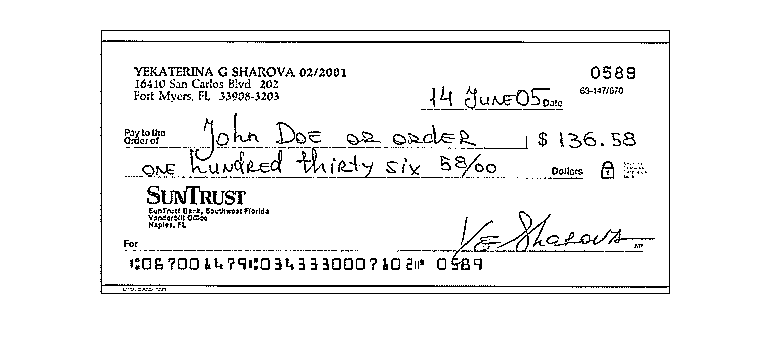 YEKATERINA G SHAROVA 02/2001
16410 San Carlos Blvd 202
Fort Myers, FL 33908-3203
0589
63-147/670
14 JUNE 05 Date
Pay to the Order of John DOE OR ORDER $ 136.58
ONE hundred thirty six 58/00 Dollars
SUNTRUST
SunTrust Bank, Southwest Florida
Vanderbilt Office
Naples, FL
For YE Sharova MP
⑆067001479⑆0343330007102⑈ 0589